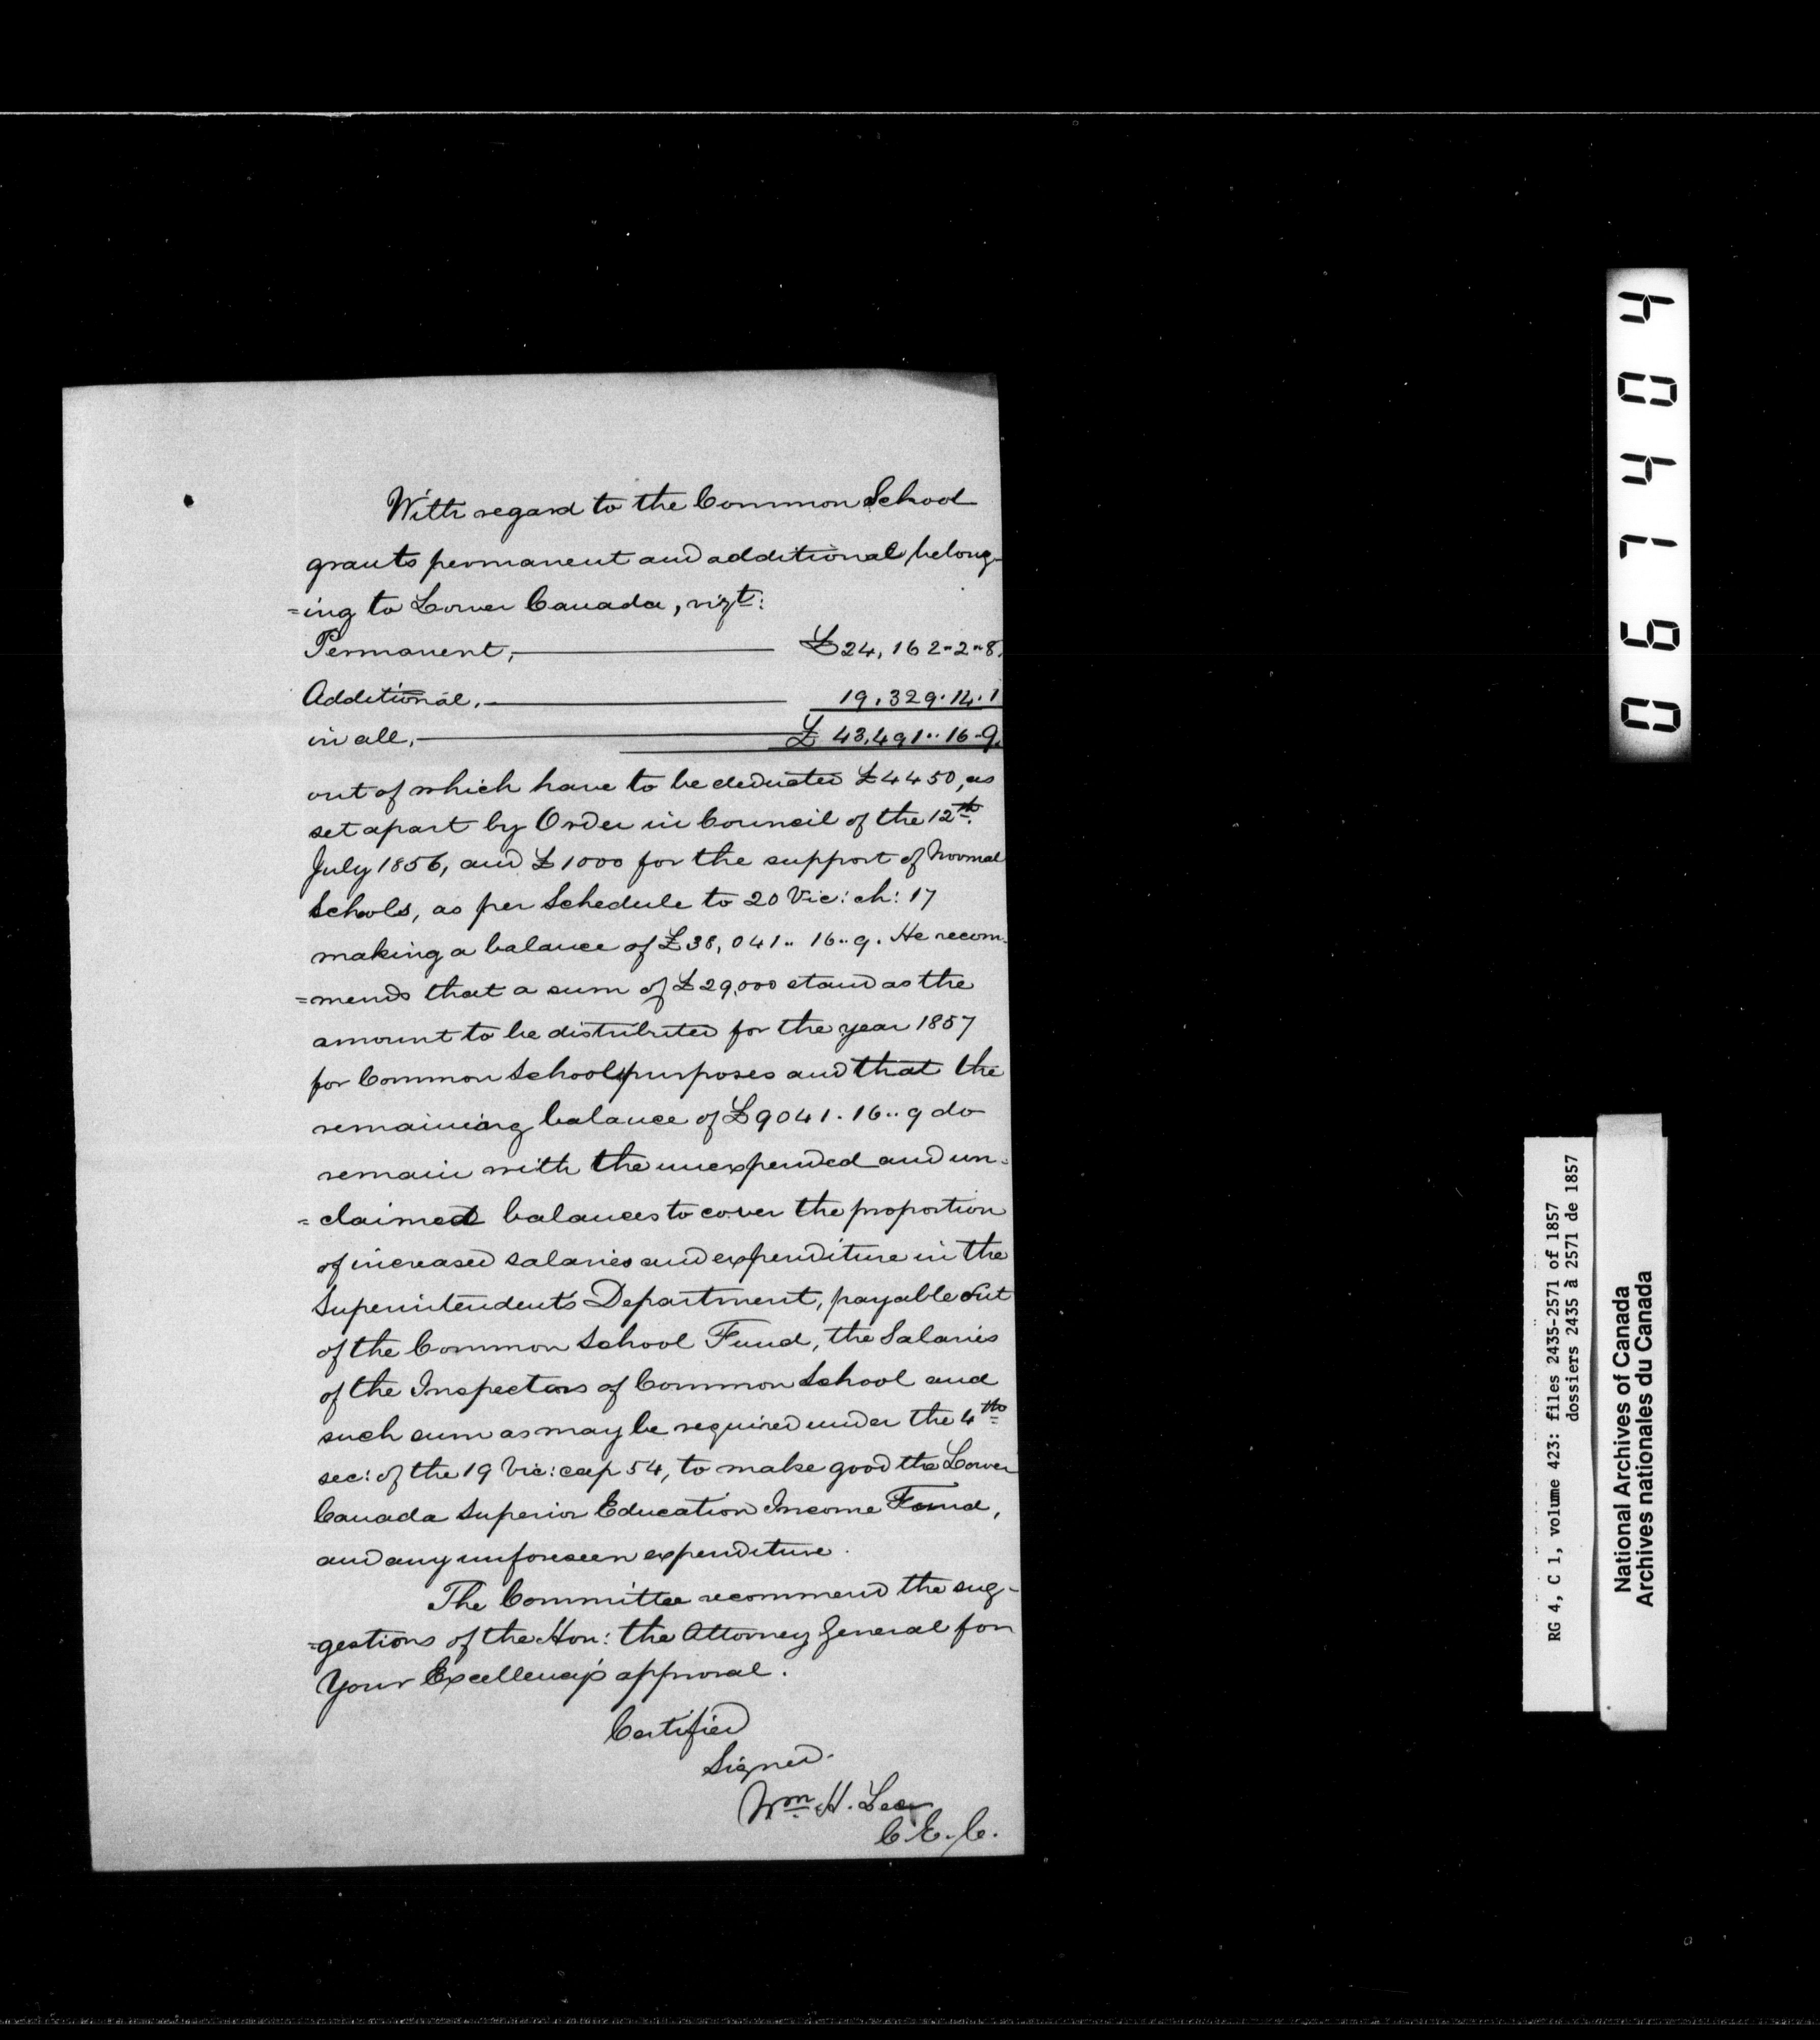 With regard to the Common School
grants permanent and additional belong-
=ing to Lower Canada, vizt:
Permanent, £24,162-2-8.
Additional, 19,329.14.1
in all, £43,491..16-9.
out of which have to be deducted £4450, as
set apart by Order in Council of the 12th
July 1856, and £1000 for the support of Normal
Schools, as per Schedule to 20 Vic: ch: 17
making a balance of £38,041.. 16..9. He recom-
=mends that a sum of £29,000 stand as the
amount to be distributed for the year 1857
for Common School purposes and that the
remaining balance of £9041.16..9 do
remain with the unexpended and un-
=claimed balances to cover the proportion
of increased salaries and expenditure in the
Superintendent's Department, payable out
of the Common School Fund, the Salaries
of the Inspectors of Common School and
such sum as may be required under the 4th
sec: of the 19 Vic: cap 54, to make good the Lower
Canada Superior Education Income Fund,
and any unforeseen expenditure.
The Committee recommend the sug-
=gestions of the Hon: the Attorney General for
Your Excellency's approval.
Certified
Signed.
Wm H. Lee
C.E.C.
067404
RG 4, C 1, volume 423: files 2435-2571 of 1857
dossiers 2435 à 2571 de 1857
National Archives of Canada
Archives nationales du Canada